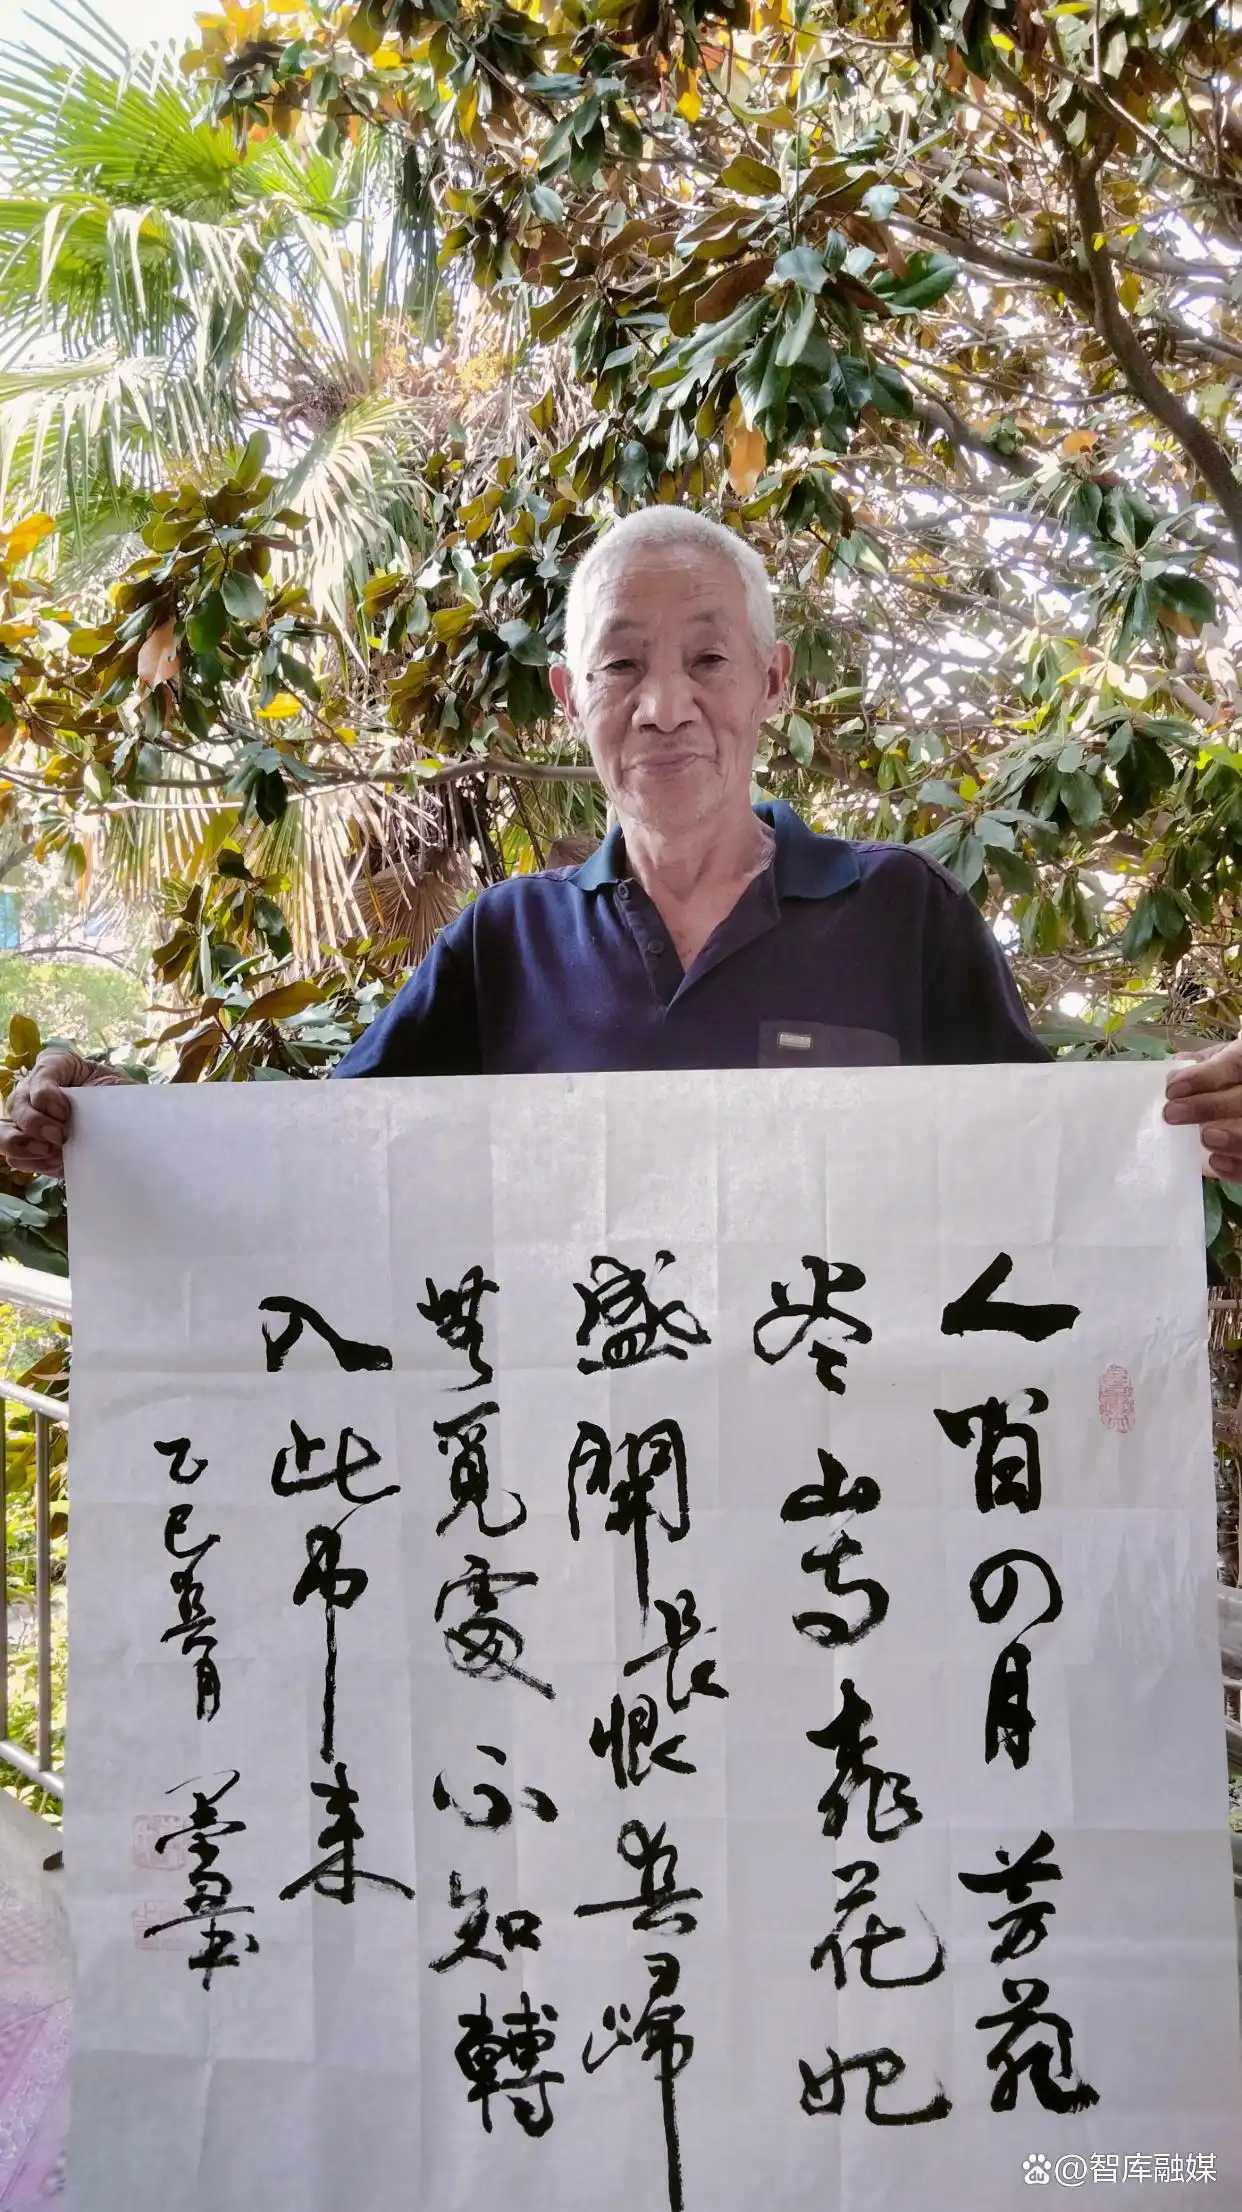 人間四月芳菲
尽山寺桃花始
盛開長恨春歸
無覓處不知轉
入此中来
乙巳春月
@智库融媒